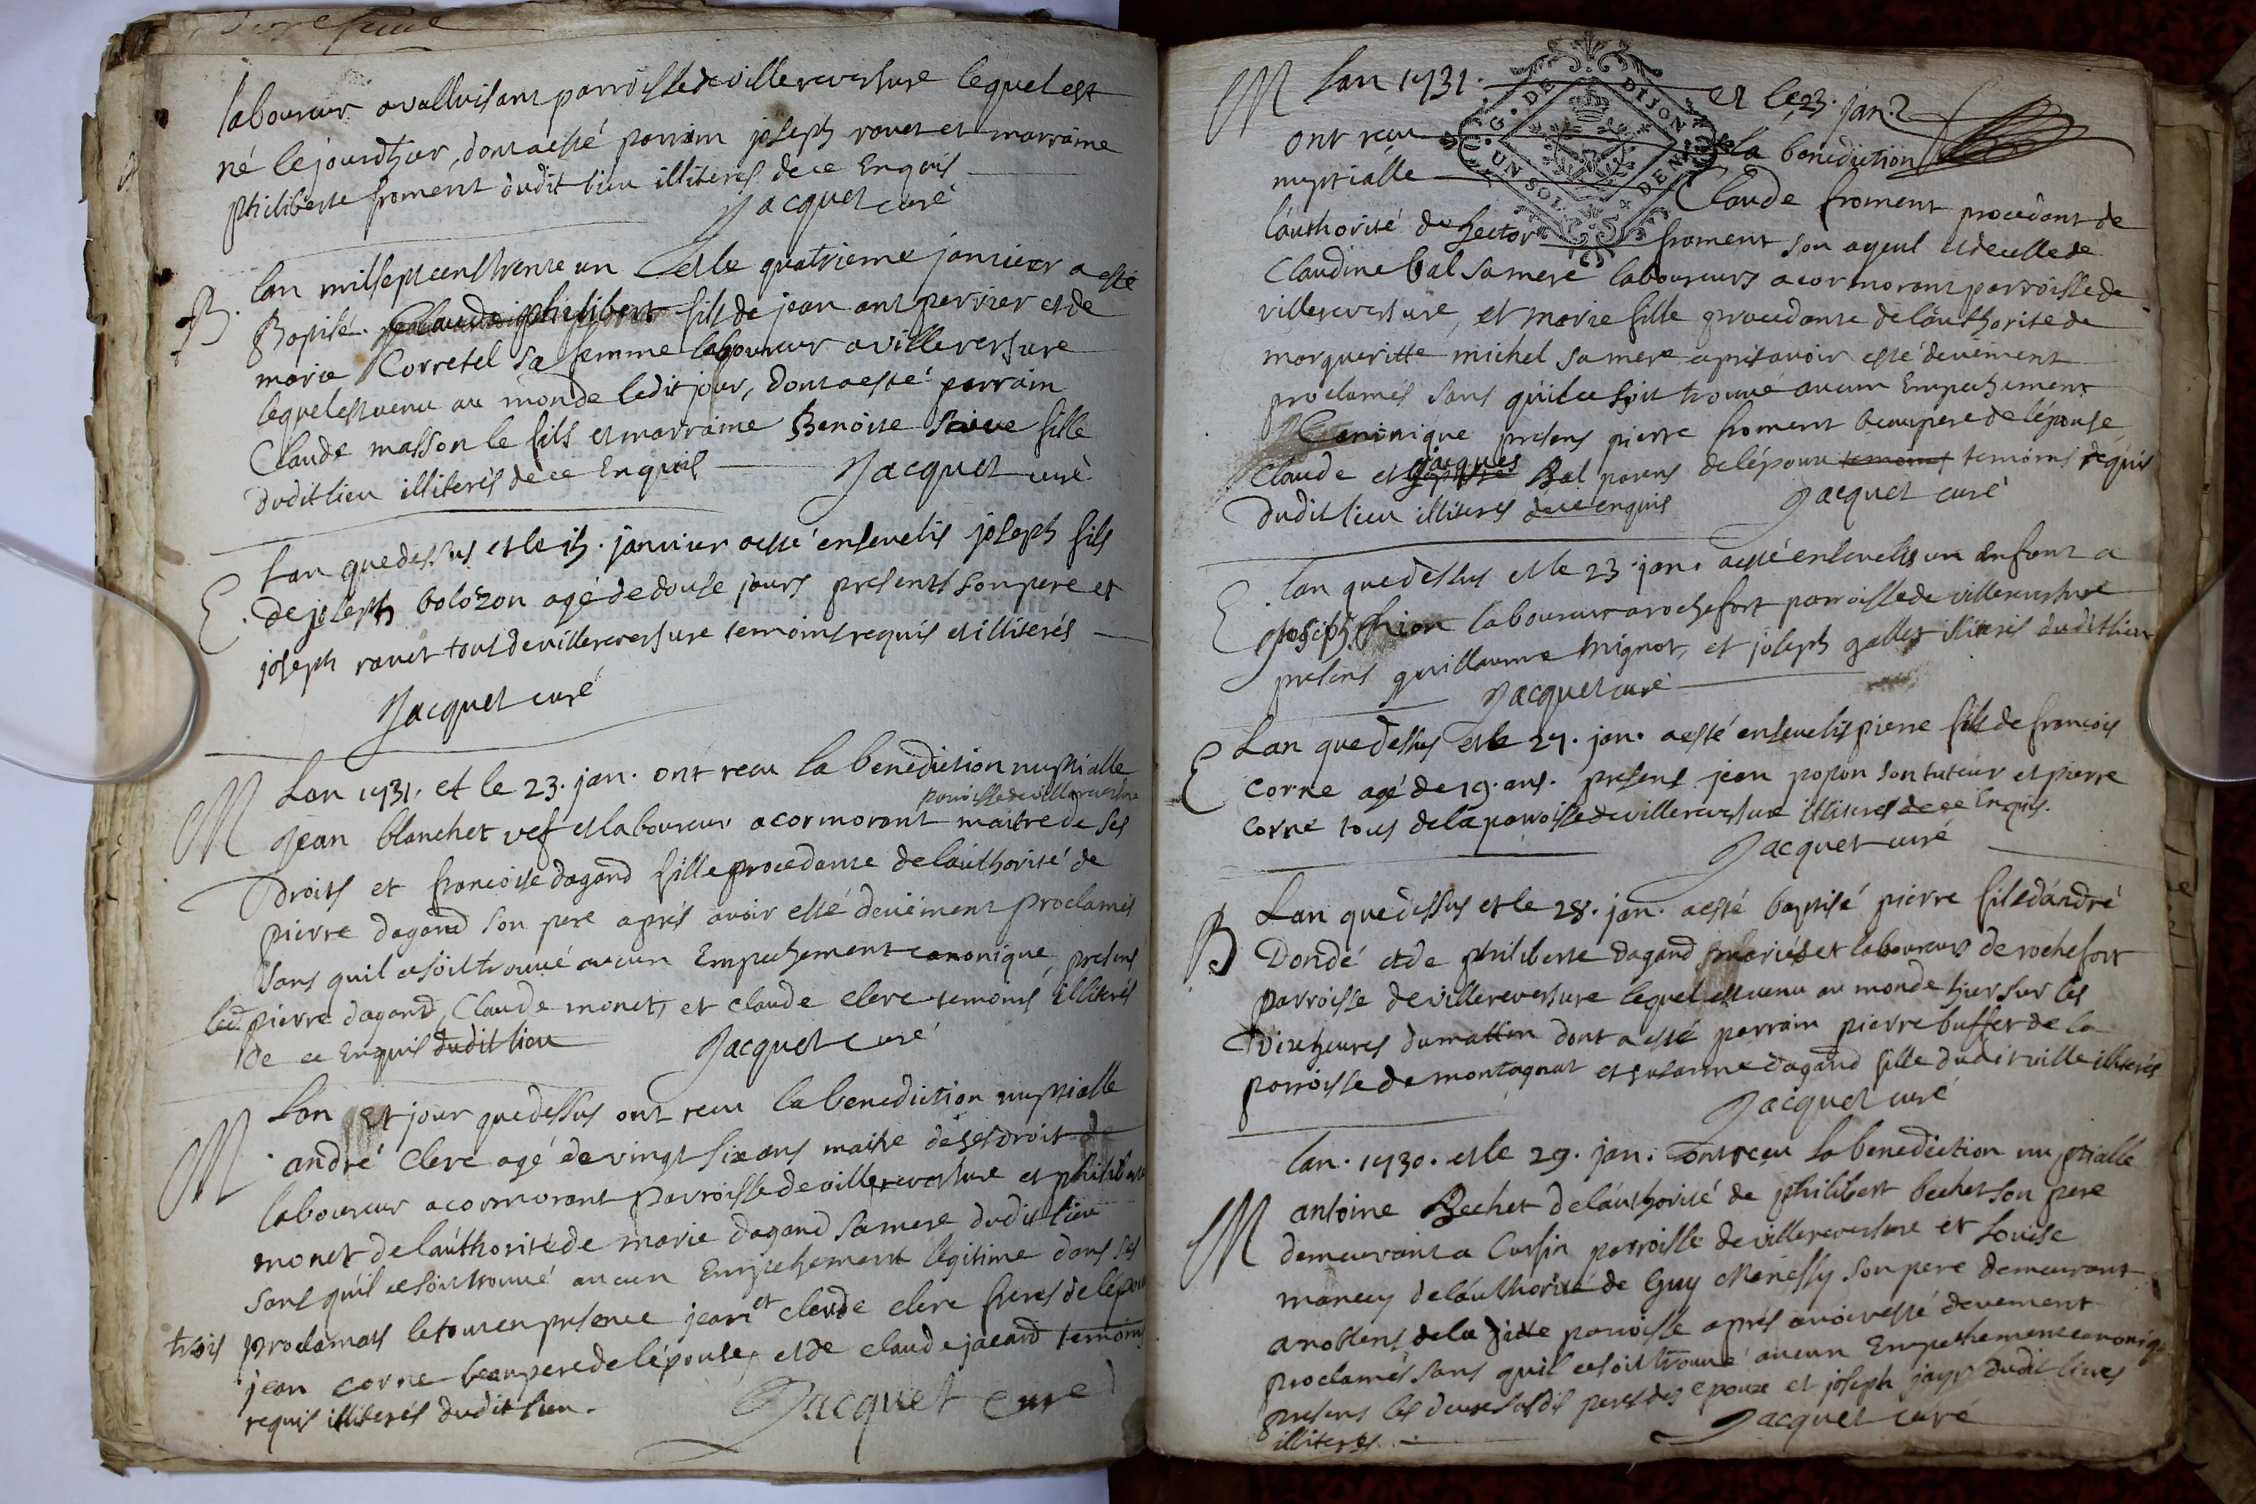 laboureur a valluisant parroisse de villereversure lequel est
né le jourd'huy, dont a esté parrain joseph ravet et marraine
philiberte froment dudit lieu illiterés de ce Enquis
Jacquet curé
B. lan mil sept cens trente un et le quatrieme janvier a esté
Baptisé claude philibert fils de jean ant perrier et de
marie Corretel sa femme laboureur a villereversure
lequel est venu au monde ledit jour, dont a esté parrain
Claude masson le fils et marraine Benoite fille
dudit lieu illiterés de ce Enquis Jacquet curé
E. lan que dessus et le 15. janvier a esté ensevelis joseph fils
de joseph bolozon agé de douse jours presents son pere et
joseph ravet tous de villereversure temoins requis et illiterés
Jacquet curé
M Lan 1731. et le 23. jan. ont receu la benediction nuptialle
parroisse de villereversure
jean blanchet vef et laboureur a cormorant maitre de ses
droits et francoise dagand fille procedante de l'authorité de
pierre dagand son pere aprés avoir esté deuëment proclamés
sans quil ce soit trouvé aucun Empechement canonique, presens
led. pierre dagand, Claude monet, et claude clerc temoins illiterés
de ce Enquis dudit lieu Jacquet curé
M Lan et jour que dessus ont receu la benediction nuptialle
andré Clerc agé de vingt six ans maitre de ses droit de
laboureur a cormorant parroisse de villereversure et philiberte
monet de l'authorité de marie dagand sa mere dudit lieu
sans qu'il ce soit trouvé aucun Empechement legitime dans ses
trois proclamats le tout en presence jean et claude clerc freres de l'epoux
jean corne beaupere de l'épouse, et de claude jacand temoins
requis illiterés dudit lieu. Jacquet curé
M lan 1731. et le 23. jan.
ont receu la benediction
nuptialle Claude froment procedant de
l'authorité de hector froment son ayeul et de celle de
Claudine bal sa mere laboureurs a cormorant parroisse de
villereversure, et marie fille procedante de l'authorité de
margueritte michel sa mere aprés avoir esté deuëment
proclamés sans qu'il ce soit trouvé aucun Empechement
Canonique presens pierre froment beaupere de l'épouse
jacques
Claude et Bal parens de lépoux temoins temoins requis
dudit lieu illiterés de ce enquis Jacquet curé
G. DE DIJON UN SOL 4 DEN
E. lan que dessus et le 23. jan. a esté ensevelis un enfant a
joseph laboureur a rochefort parroisse de villereversure
presens guillaume mignot, et joseph gallet illiterés dudit lieu
Jacquet curé
E Lan que dessus et le 27. jan. a esté ensevelis pierre fils de francois
corne agé de 19. ans. presens jean popon son tuteur et pierre
corne tous de la parroisse de villereversure illiterés de ce Enquis.
Jacquet curé
B Lan que dessus et le 28. jan. a esté baptisé pierre fils d'andré
Dondé et de philiberte dagand mariés et laboureurs de rochefort
parroisse de villereversure lequel est venu au monde hier sur les
dix heures du mattin dont a esté parrain pierre buffet de la
parroisse de montagnat et susanne dagand fille dudit ville illiterés
Jacquet curé
M lan. 1730. et le 29. jan. ont receu la benediction nuptialle
antoine Bechet de l'authorité de philibert bechet son pere
demeurant a Cursin parroisse de villereversure et Louise
manecy de l'authorité de Guy Menessy son pere demeurant
a noblens de la ditte parroisse aprés avoir esté deuement
proclamés sans quil ce soit trouvé aucun Empechement canonique
presens les deux susdis peres des epoux et joseph jayr dudit lieux
illiterés. Jacquet curé